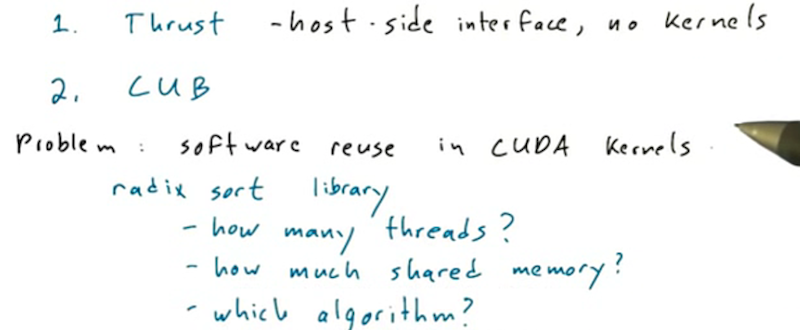 1. Thrust - host-side interface, no kernels
2. CUB
Problem: software reuse in CUDA Kernels.
radix sort library
- how many threads?
- how much shared memory?
- which algorithm?